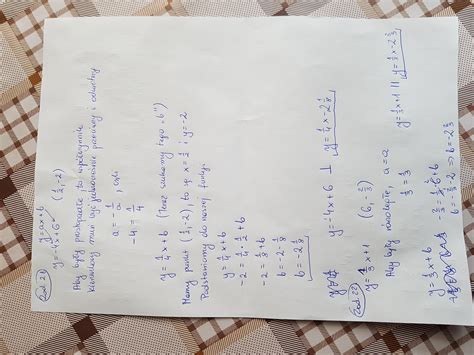 Zad. 21 y=ax+b
y=-4x+6 (1/2, -2)
Aby były prostopadłe to współczynnik
kierunkowy musi być jednocześnie przeciwny i odwrotny
a = -1/a, czyli
-4 = 1/4
y = 1/4x+b (Teraz szukamy tego "b")
Mamy punkt (1/2, -2), to są x = 1/2 i y=-2
Podstawiamy do naszej funkcji.
y = 1/4x+b
-2 = 1/4 · 1/2 + b
-2 = 1/8 + b
b = -2 - 1/8
b = -2 1/8
y=-4x+6 ⊥ y = 1/4x - 2 1/8
Zad. 22
y = 1/3x+1 (6, -2/3)
Aby były równoległe, a=a
1/3 = 1/3
y = 1/3x+b
-2/3 = 1/3 · 6 + b
-2/3 - 2 => b = -2 2/3
y = 1/3x+1 || y = 1/3x - 2 2/3